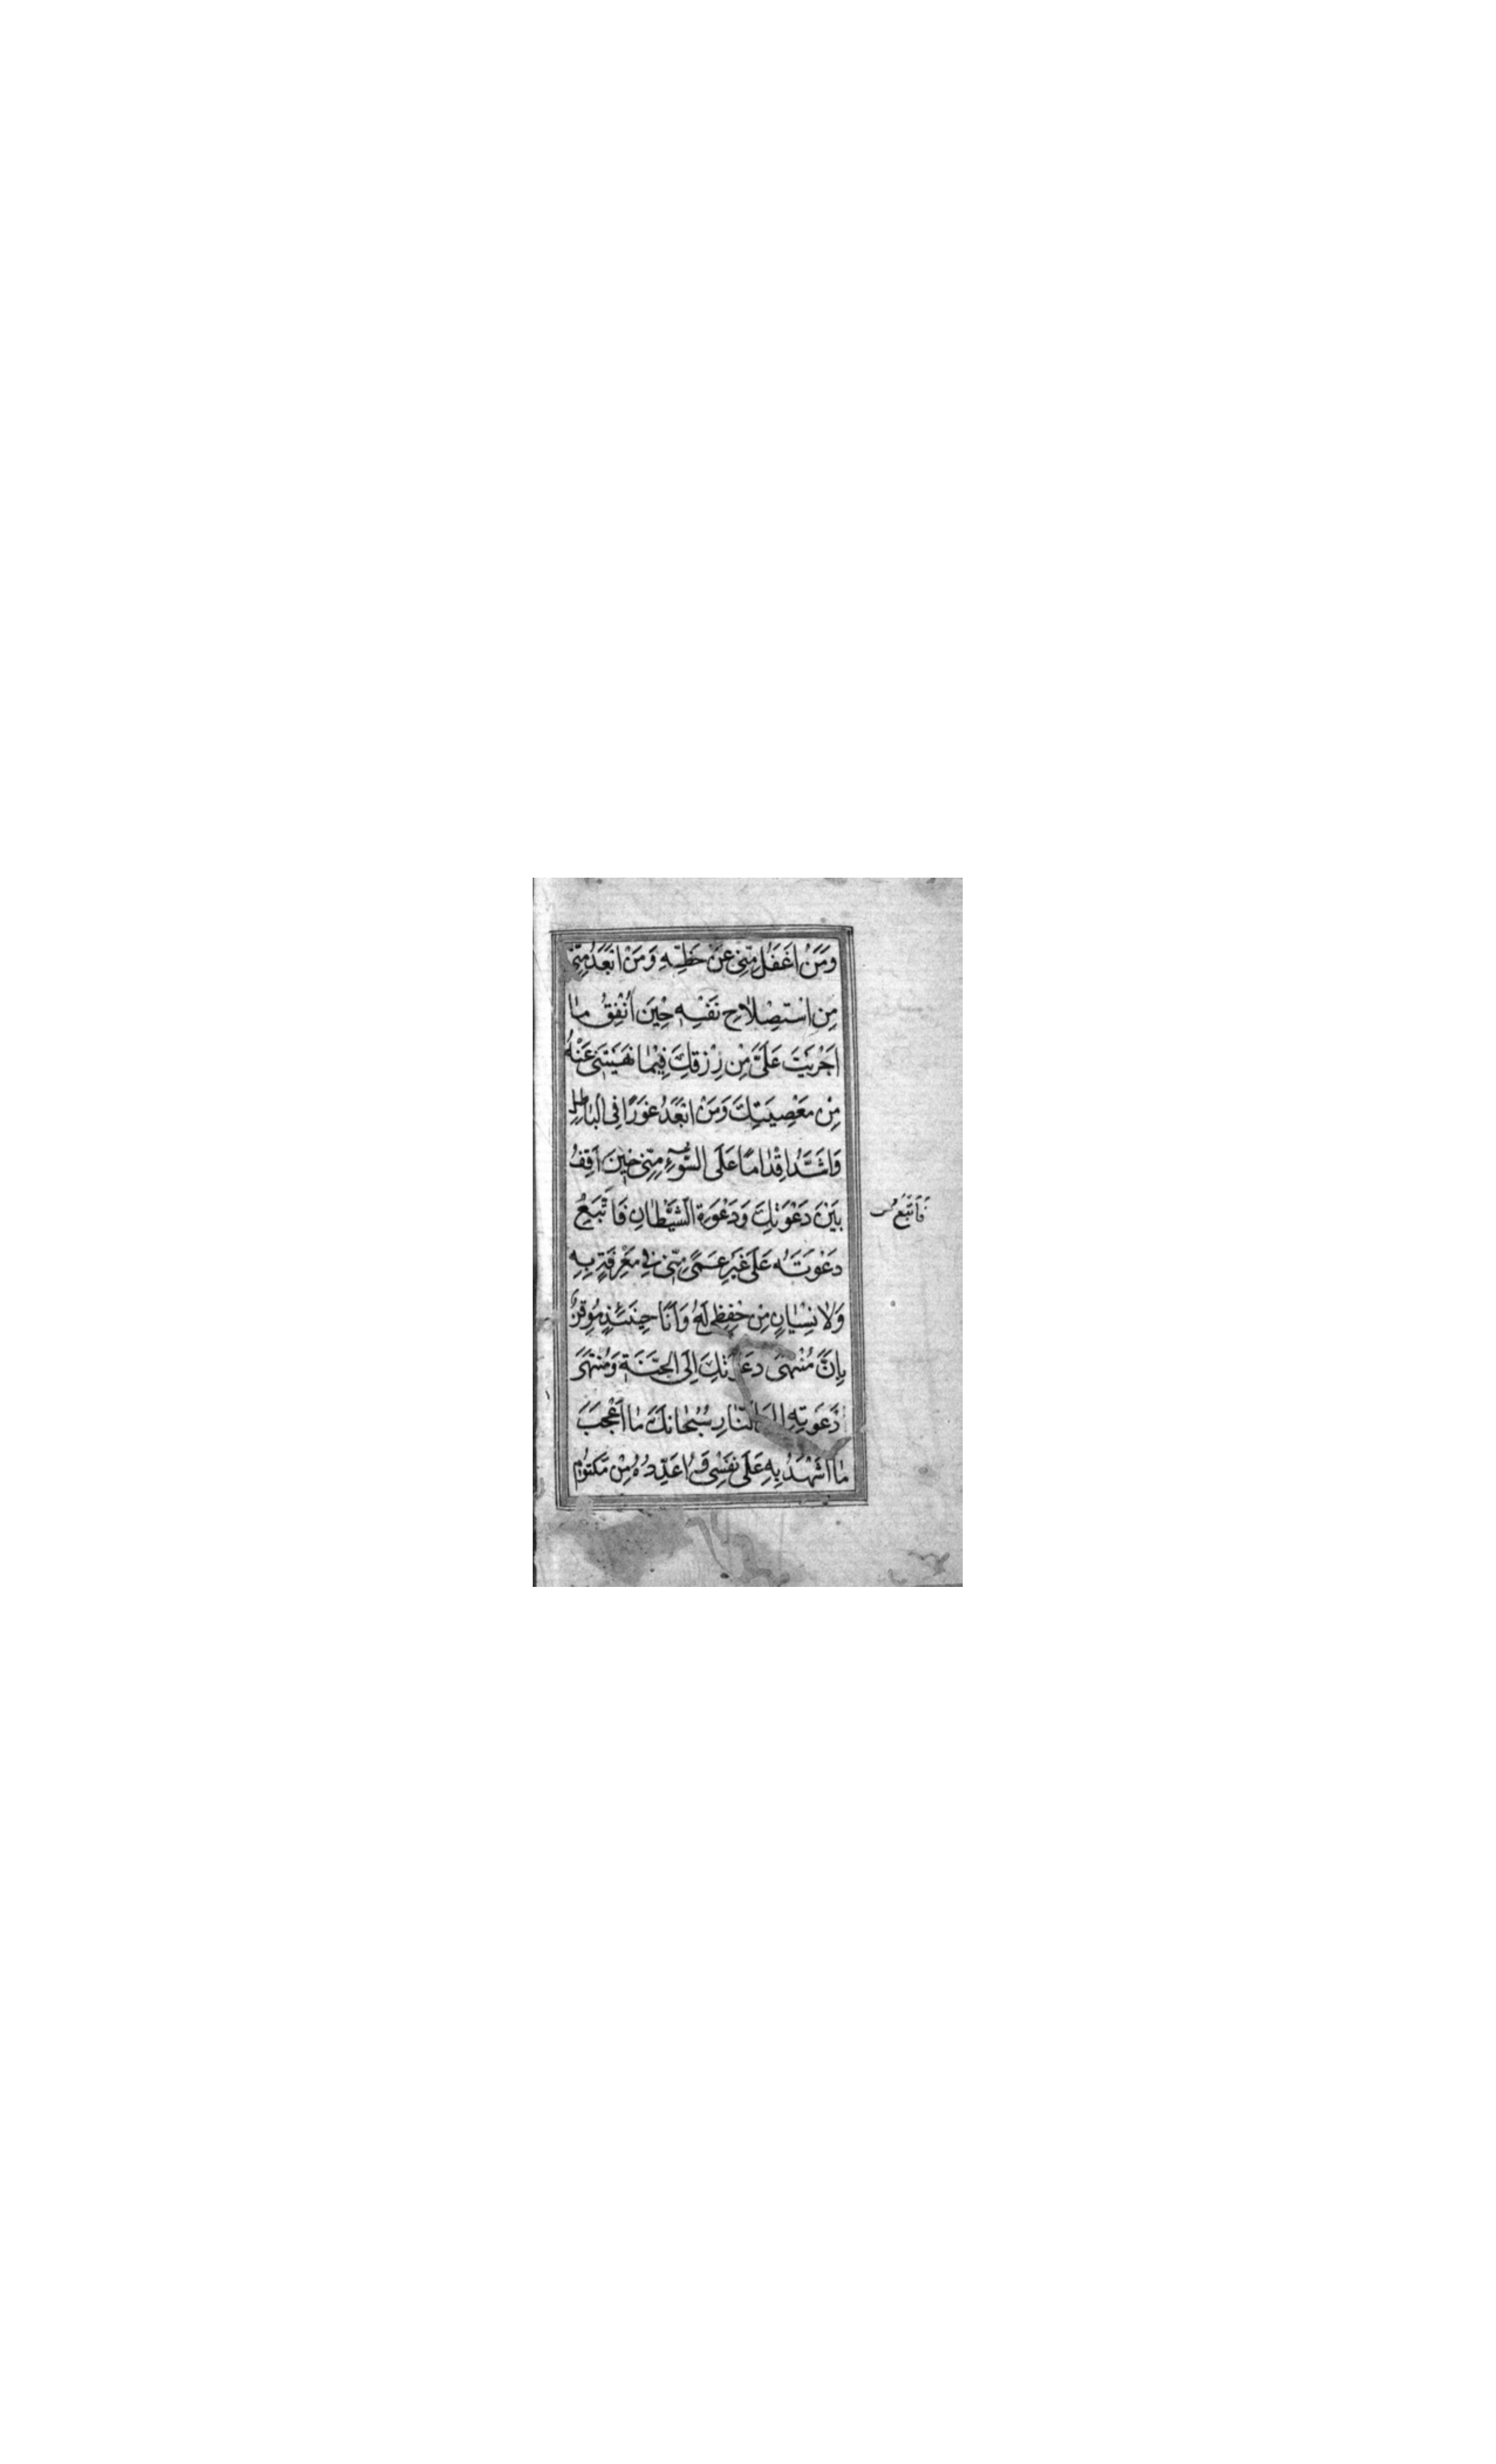 وَمَنْ اَغْفَلُ مِنّي عَنْ حَظِّهِ وَمَنْ اَبْعَدُ مِنّي
مِنِ اسْتِصْلاٰحِ نَفْسِهِ حِيْنَ اُنْفِقُ مٰا
اَجْرَيْتَ عَلَيَّ مِنْ رِزْقِكَ فِيْمٰا نَهَيْتَنِى عَنْهُ
مِنْ مَعْصِيَتِكَ وَمَنْ اَبْعَدُ غَوْرًا فِى الْبٰاطِلِ
وَاَشَدُّ اِقْدٰامًا عَلَى السُّوْۤءِ مِنّي حِيْنَ اَقِفُ
بَيْنَ دَعْوَتِكَ وَدَعْوَةِ الشَّيْطٰانِ فَاَتْبَعُ
فَاَتَّبِعُ
دَعْوَتَهُ عَلٰى غَيْرِ عَمًى مِنّي فِي مَعْرِفَةٍ بِهِ
وَلاٰ نِسْيٰانٍ مِنْ حِفْظِي لَهُ وَاَنَا حِيْنَئِذٍ مُوْقِنٌ
بِاَنَّ مُنْتَهٰى دَعْوَتِكَ اِلَى الْجَنَّةِ وَمُنْتَهٰى
دَعْوَتِهِ اِلَى النّٰارِ سُبْحٰانَكَ مٰا اَعْجَبَ
مٰا اَشْهَدُ بِهِ عَلٰى نَفْسِي وَاُعَدِّدُهُ مِنْ مَكْتُوْمِ